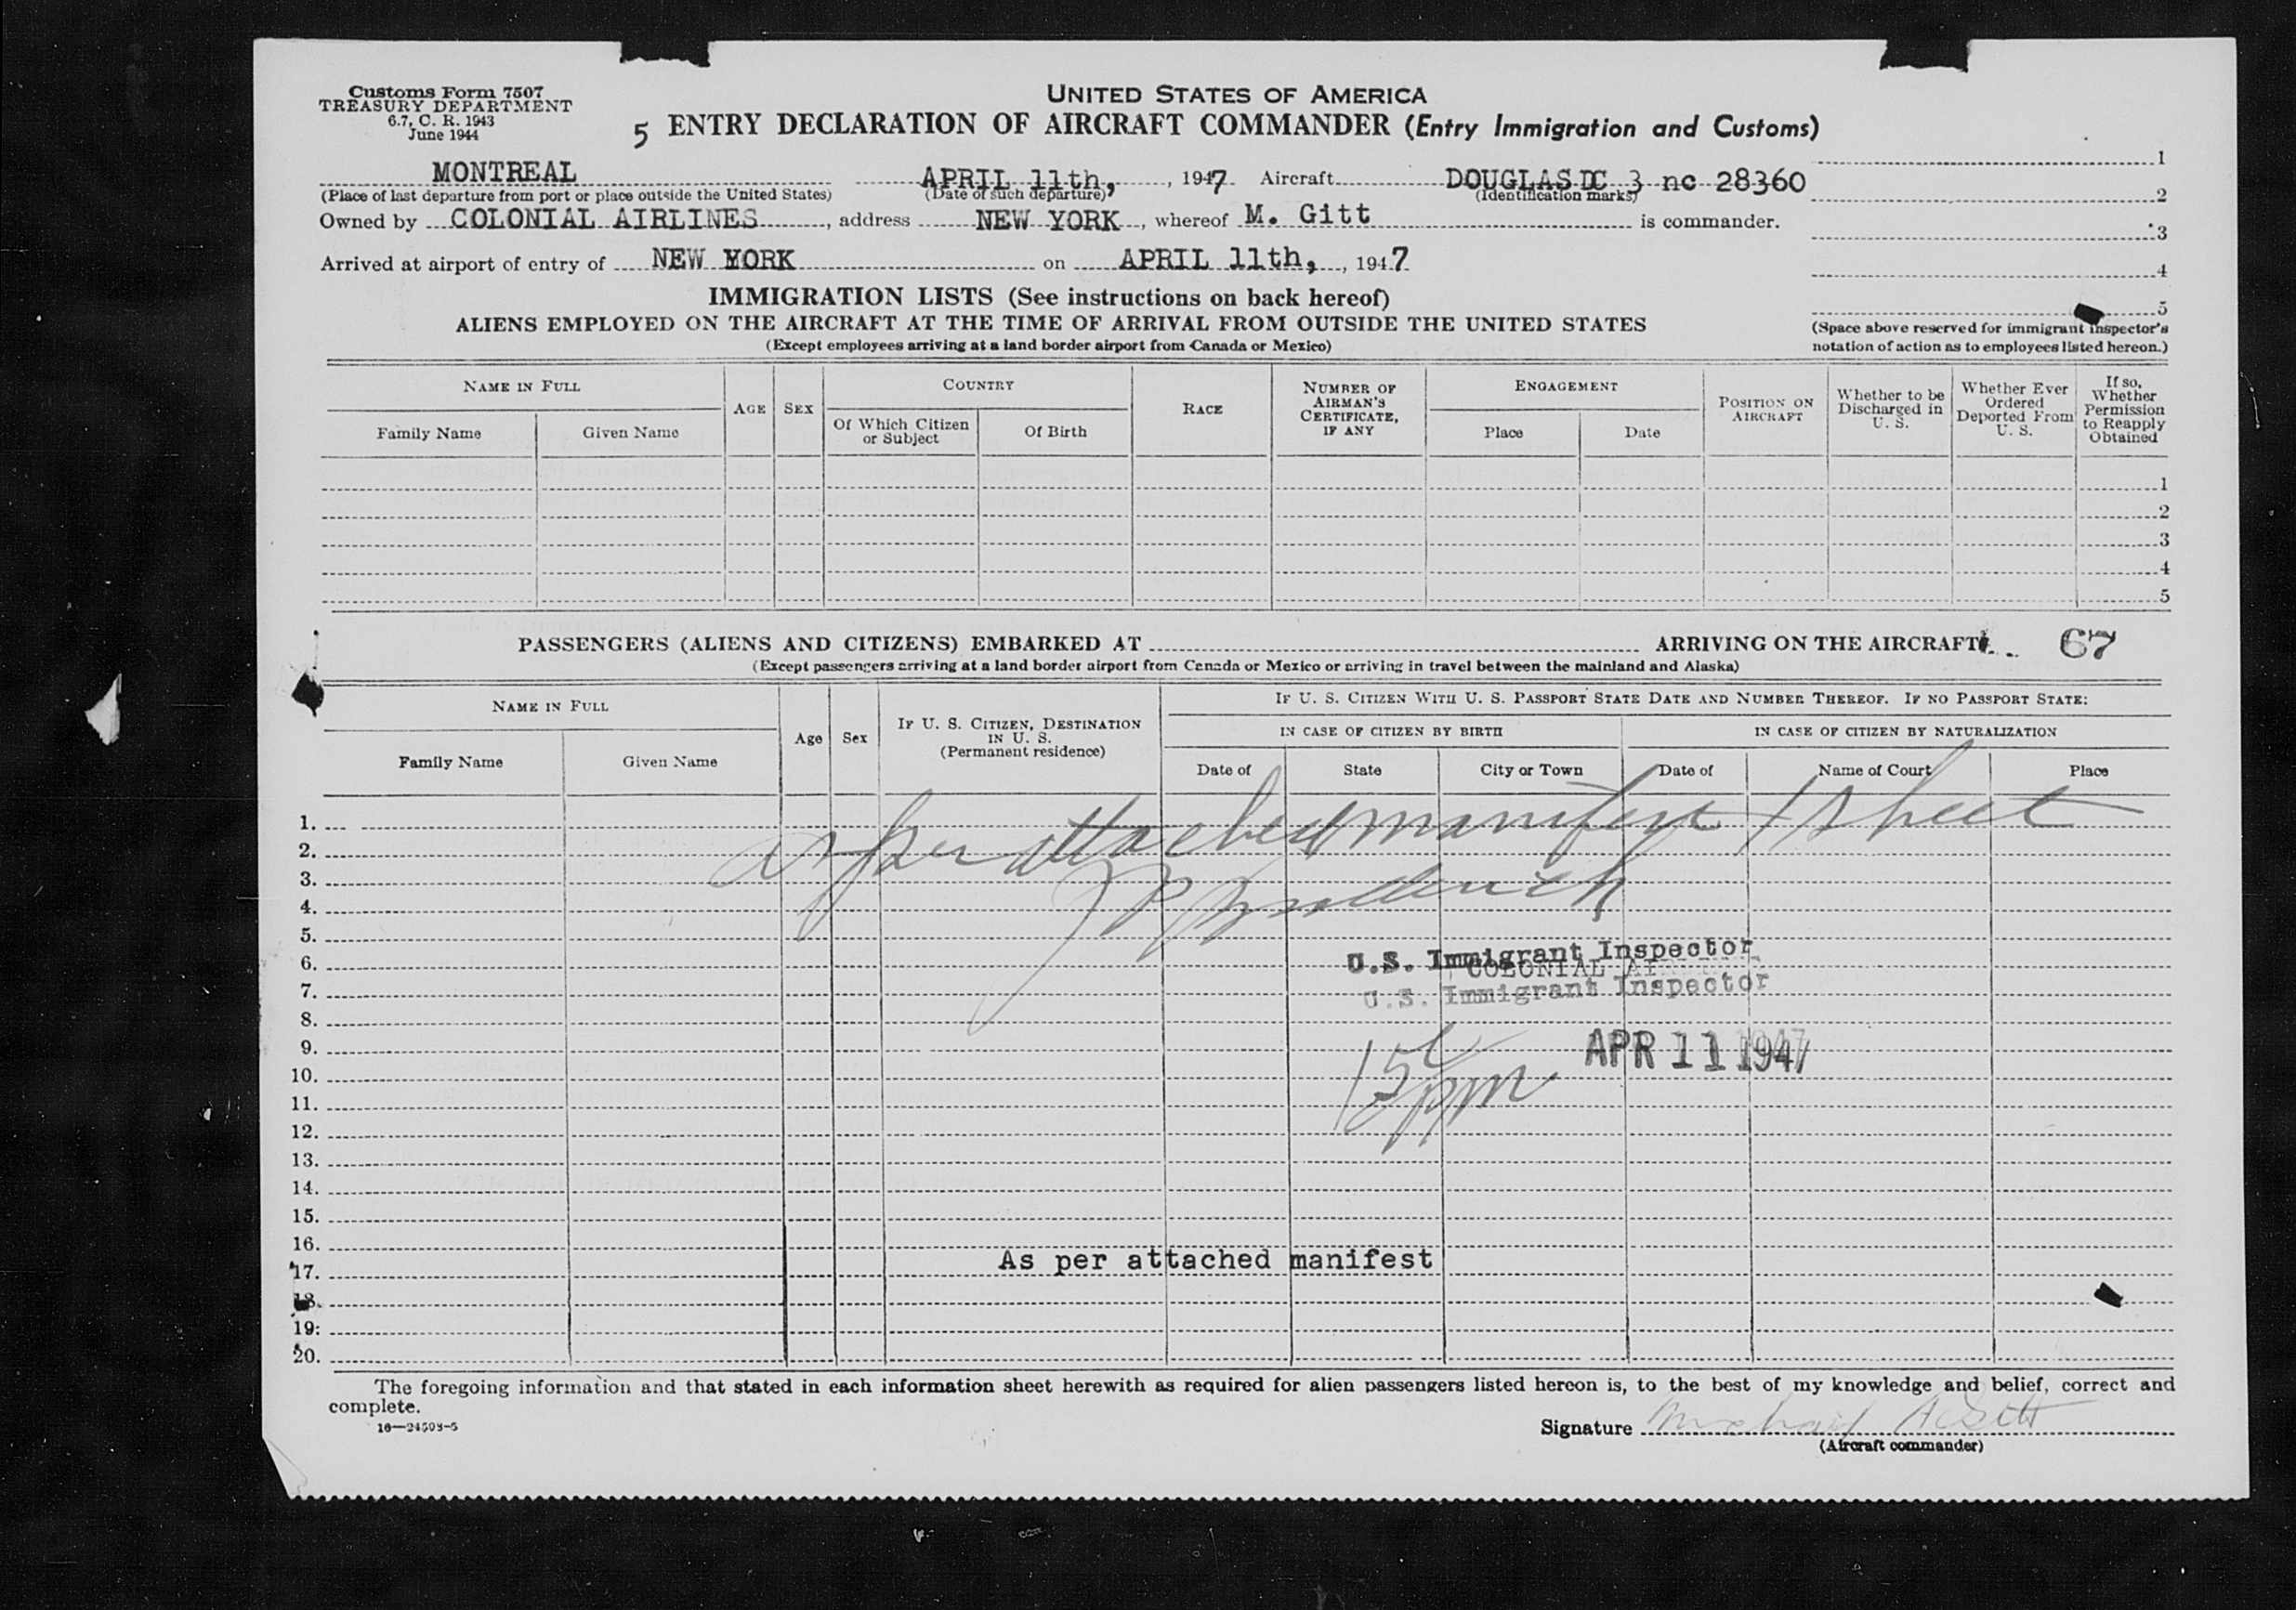 Customs Form 7507
TREASURY DEPARTMENT
6.7, C. R. 1943
June 1944
UNITED STATES OF AMERICA
5 ENTRY DECLARATION OF AIRCRAFT COMMANDER (Entry Immigration and Customs)
MONTREAL APRIL 11th, , 1947 Aircraft DOUGLAS DC 3 nc 28360
(Place of last departure from port or place outside the United States) (Date of such departure) (Identification marks)
Owned by COLONIAL AIRLINES , address NEW YORK , whereof M. Gitt is commander.
Arrived at airport of entry of NEW YORK on APRIL 11th, , 1947
1
2
3
4
5
(Space above reserved for immigrant inspector's
notation of action as to employees listed hereon.)
IMMIGRATION LISTS (See instructions on back hereof)
ALIENS EMPLOYED ON THE AIRCRAFT AT THE TIME OF ARRIVAL FROM OUTSIDE THE UNITED STATES
(Except employees arriving at a land border airport from Canada or Mexico)
NAME IN FULL
Family Name
Given Name
AGE
SEX
COUNTRY
Of Which Citizen
or Subject
Of Birth
RACE
NUMBER OF
AIRMAN'S
CERTIFICATE,
IF ANY
ENGAGEMENT
Place
Date
POSITION ON
AIRCRAFT
Whether to be
Discharged in
U. S.
Whether Ever
Ordered
Deported From
U. S.
If so,
Whether
Permission
to Reapply
Obtained
1
2
3
4
5
PASSENGERS (ALIENS AND CITIZENS) EMBARKED AT ARRIVING ON THE AIRCRAFT 67
(Except passengers arriving at a land border airport from Canada or Mexico or arriving in travel between the mainland and Alaska)
NAME IN FULL
Family Name
Given Name
Age
Sex
IF U. S. CITIZEN, DESTINATION
IN U. S.
(Permanent residence)
IF U. S. CITIZEN WITH U. S. PASSPORT STATE DATE AND NUMBER THEREOF. IF NO PASSPORT STATE:
IN CASE OF CITIZEN BY BIRTH
Date of
State
City or Town
IN CASE OF CITIZEN BY NATURALIZATION
Date of
Name of Court
Place
1.
as per attached manifest 1 sheet
2.
3.
4.
5.
6.
U.S. Immigrant Inspector
COLONIAL
7.
U.S. Immigrant Inspector
8.
9.
APR 11 1947
10.
pm
11.
12.
13.
14.
15.
16.
As per attached manifest
17.
18.
19.
20.
The foregoing information and that stated in each information sheet herewith as required for alien passengers listed hereon is, to the best of my knowledge and belief, correct and
complete.
16—24503-5
Signature Michael A Gitt
(Aircraft commander)